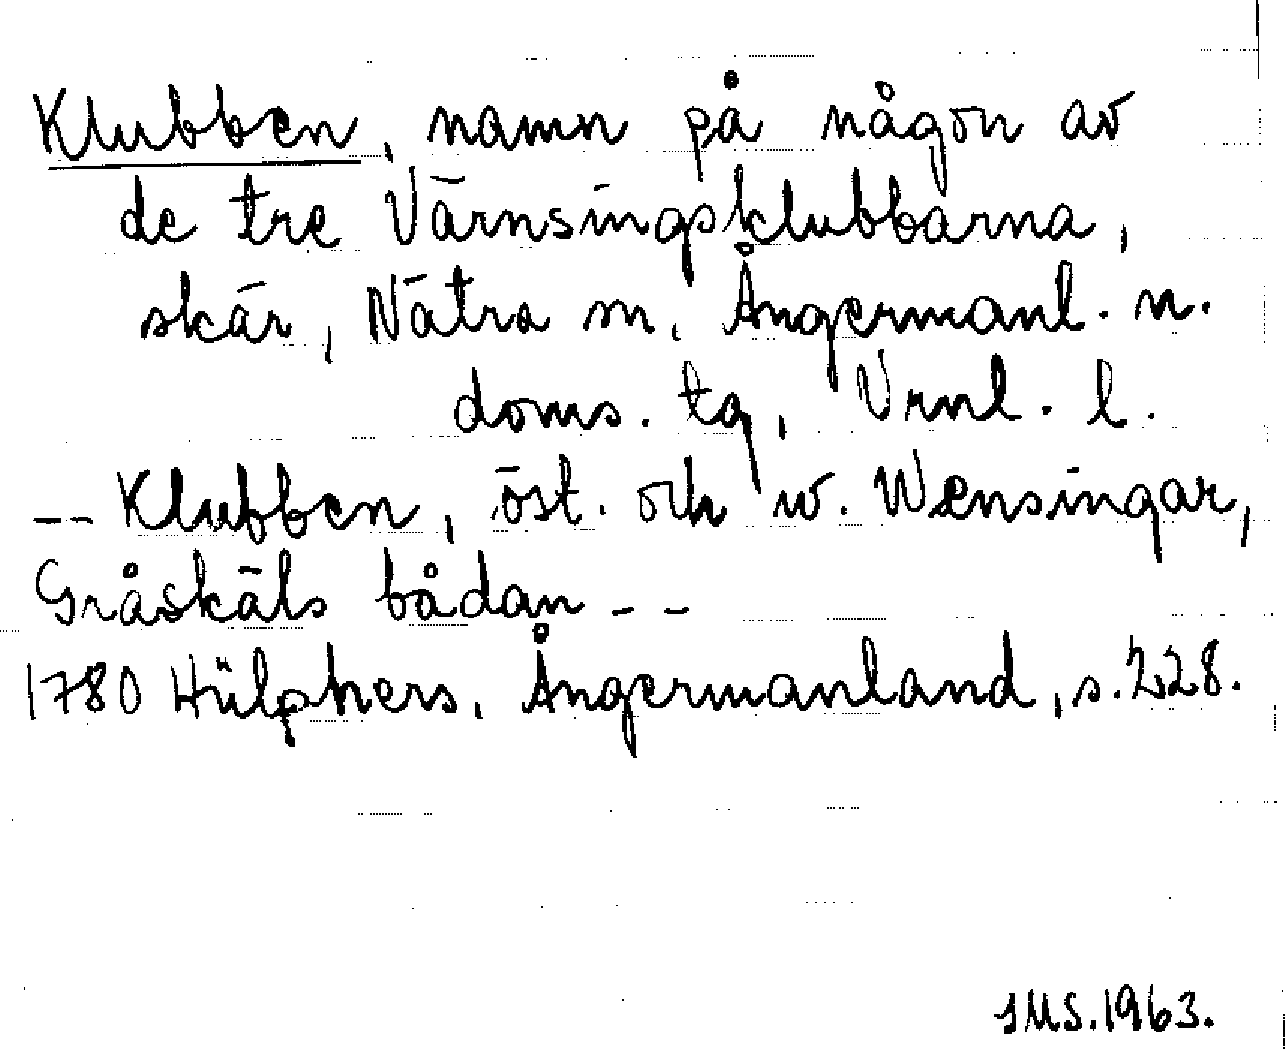 Klubben, namn på någon av
de tre Värnsingsklubbarna,
skär, Nätra sn, Ångermanl. n.
doms. tg, Vrnl. l.
-- Klubben, öst. och w. Wensingar,
Gråskäls bådan --
1780 Hülphers, Ångermanland, s. 228.
JMS. 1963.